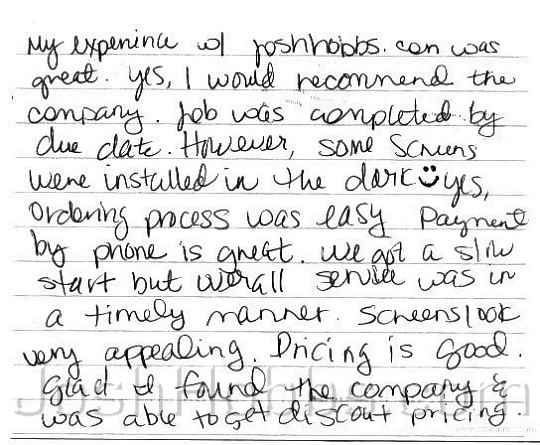 My experince w/ joshhobbs.com was
great. yes, I would recommend the
company. Job was completed by
due date. However, some screens
were installed in the dark☻yes,
Ordering process was easy Payment
by phone is great. We got a slow
start but overall service was in
a timely manner. Screens look
very appealing. Pricing is Good.
Glad I found the company &
was able to get discout pricing.
JoshHobbs.com